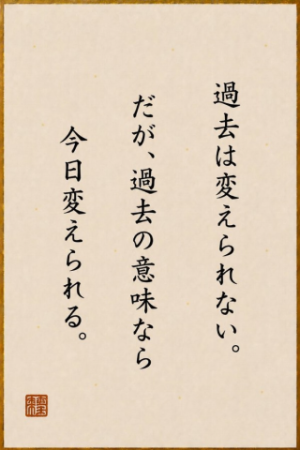 過去は変えられない。
だが、過去の意味なら
今日変えられる。